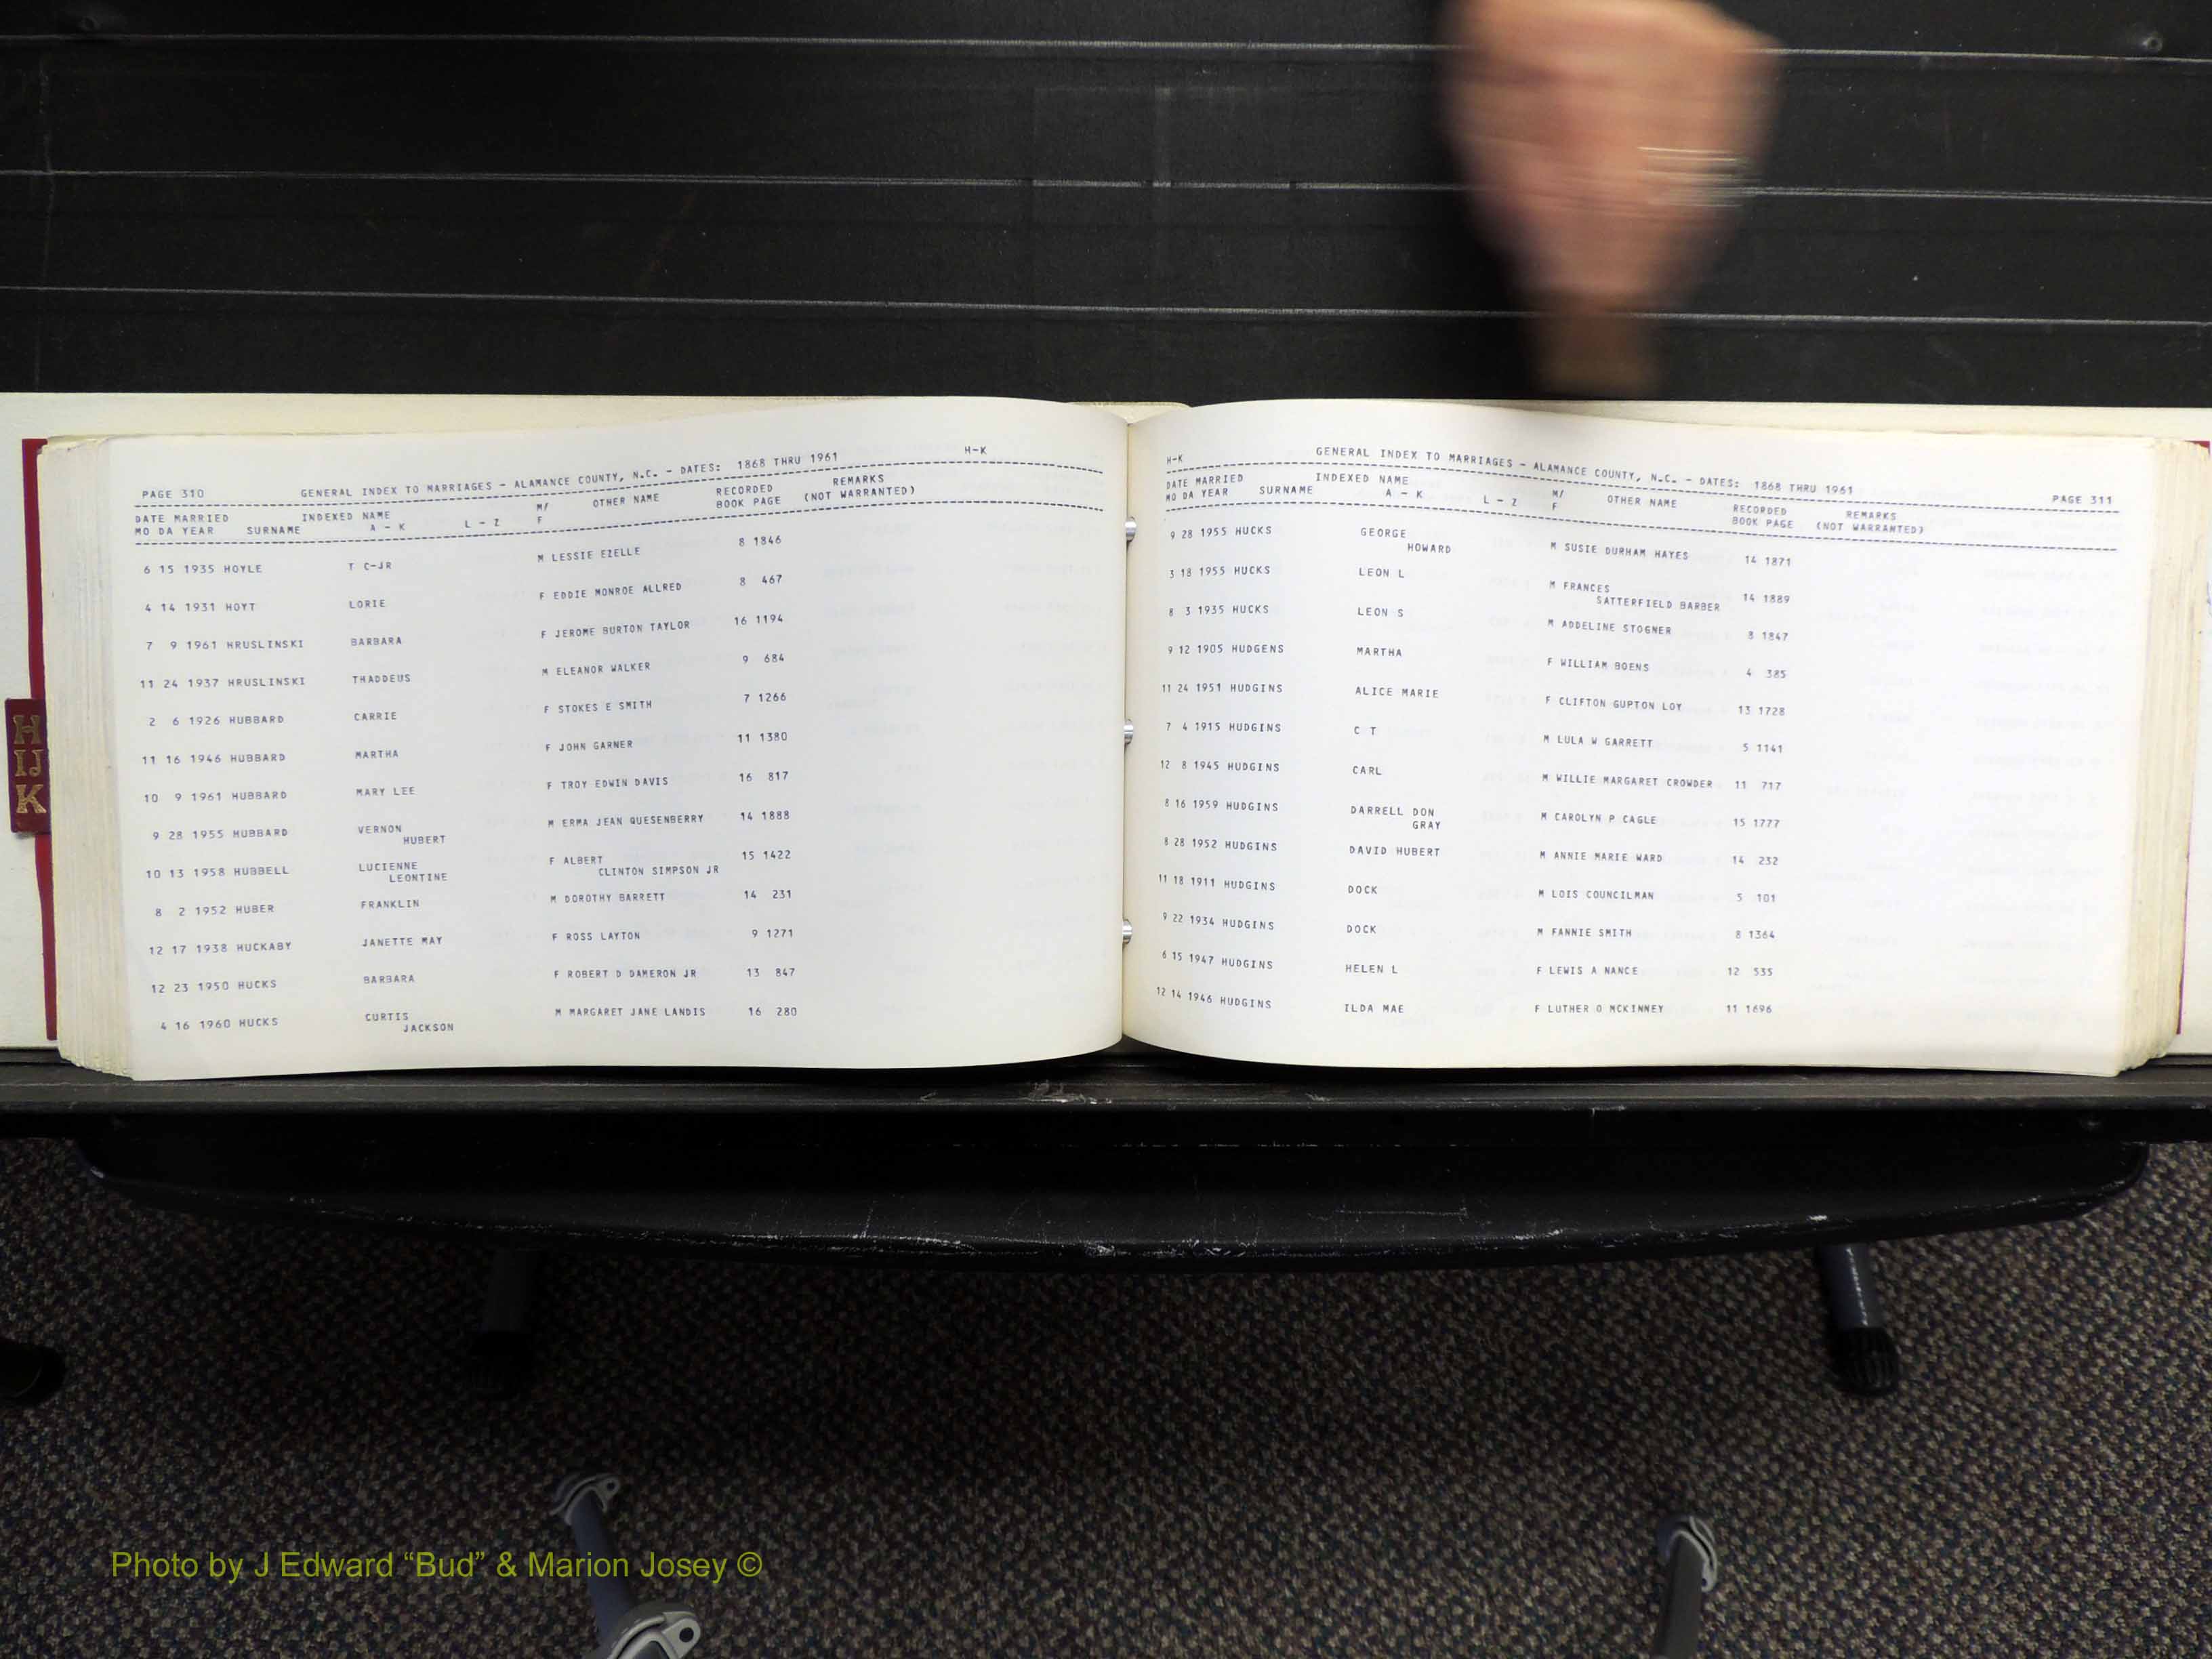 PAGE 310 GENERAL INDEX TO MARRIAGES - ALAMANCE COUNTY, N.C. - DATES: 1868 THRU 1961 H-K
DATE MARRIED INDEXED NAME M/ OTHER NAME RECORDED REMARKS
MO DA YEAR SURNAME A - K L - Z F BOOK PAGE (NOT WARRANTED)
6 15 1935 HOYLE T C-JR M LESSIE EZELLE 8 1846
4 14 1931 HOYT LORIE F EDDIE MONROE ALLRED 8 467
7 9 1961 HRUSLINSKI BARBARA F JEROME BURTON TAYLOR 16 1194
11 24 1937 HRUSLINSKI THADDEUS M ELEANOR WALKER 9 684
2 6 1926 HUBBARD CARRIE F STOKES E SMITH 7 1266
11 16 1946 HUBBARD MARTHA F JOHN GARNER 11 1380
10 9 1961 HUBBARD MARY LEE F TROY EDWIN DAVIS 16 817
9 28 1955 HUBBARD VERNON M ERMA JEAN QUESENBERRY 14 1888
HUBERT
10 13 1958 HUBBELL LUCIENNE F ALBERT 15 1422
LEONTINE CLINTON SIMPSON JR
8 2 1952 HUBER FRANKLIN M DOROTHY BARRETT 14 231
12 17 1938 HUCKABY JANETTE MAY F ROSS LAYTON 9 1271
12 23 1950 HUCKS BARBARA F ROBERT D DAMERON JR 13 847
4 16 1960 HUCKS CURTIS M MARGARET JANE LANDIS 16 280
JACKSON
H-K GENERAL INDEX TO MARRIAGES - ALAMANCE COUNTY, N.C. - DATES: 1868 THRU 1961 PAGE 311
DATE MARRIED INDEXED NAME M/ OTHER NAME RECORDED REMARKS
MO DA YEAR SURNAME A - K L - Z F BOOK PAGE (NOT WARRANTED)
9 28 1955 HUCKS GEORGE M SUSIE DURHAM HAYES 14 1871
HOWARD
3 18 1955 HUCKS LEON L M FRANCES 14 1889
SATTERFIELD BARBER
8 3 1935 HUCKS LEON S M ADDELINE STOGNER 8 1847
9 12 1905 HUDGENS MARTHA F WILLIAM BOENS 4 385
11 24 1951 HUDGINS ALICE MARIE F CLIFTON GUPTON LOY 13 1728
7 4 1915 HUDGINS C T M LULA W GARRETT 5 1141
12 8 1945 HUDGINS CARL M WILLIE MARGARET CROWDER 11 717
8 16 1959 HUDGINS DARRELL DON M CAROLYN P CAGLE 15 1777
GRAY
8 28 1952 HUDGINS DAVID HUBERT M ANNIE MARIE WARD 14 232
11 18 1911 HUDGINS DOCK M LOIS COUNCILMAN 5 101
9 22 1934 HUDGINS DOCK M FANNIE SMITH 8 1364
6 15 1947 HUDGINS HELEN L F LEWIS A NANCE 12 535
12 14 1946 HUDGINS ILDA MAE F LUTHER O MCKINNEY 11 1696
H
IJ
K
Photo by J Edward “Bud” & Marion Josey ©